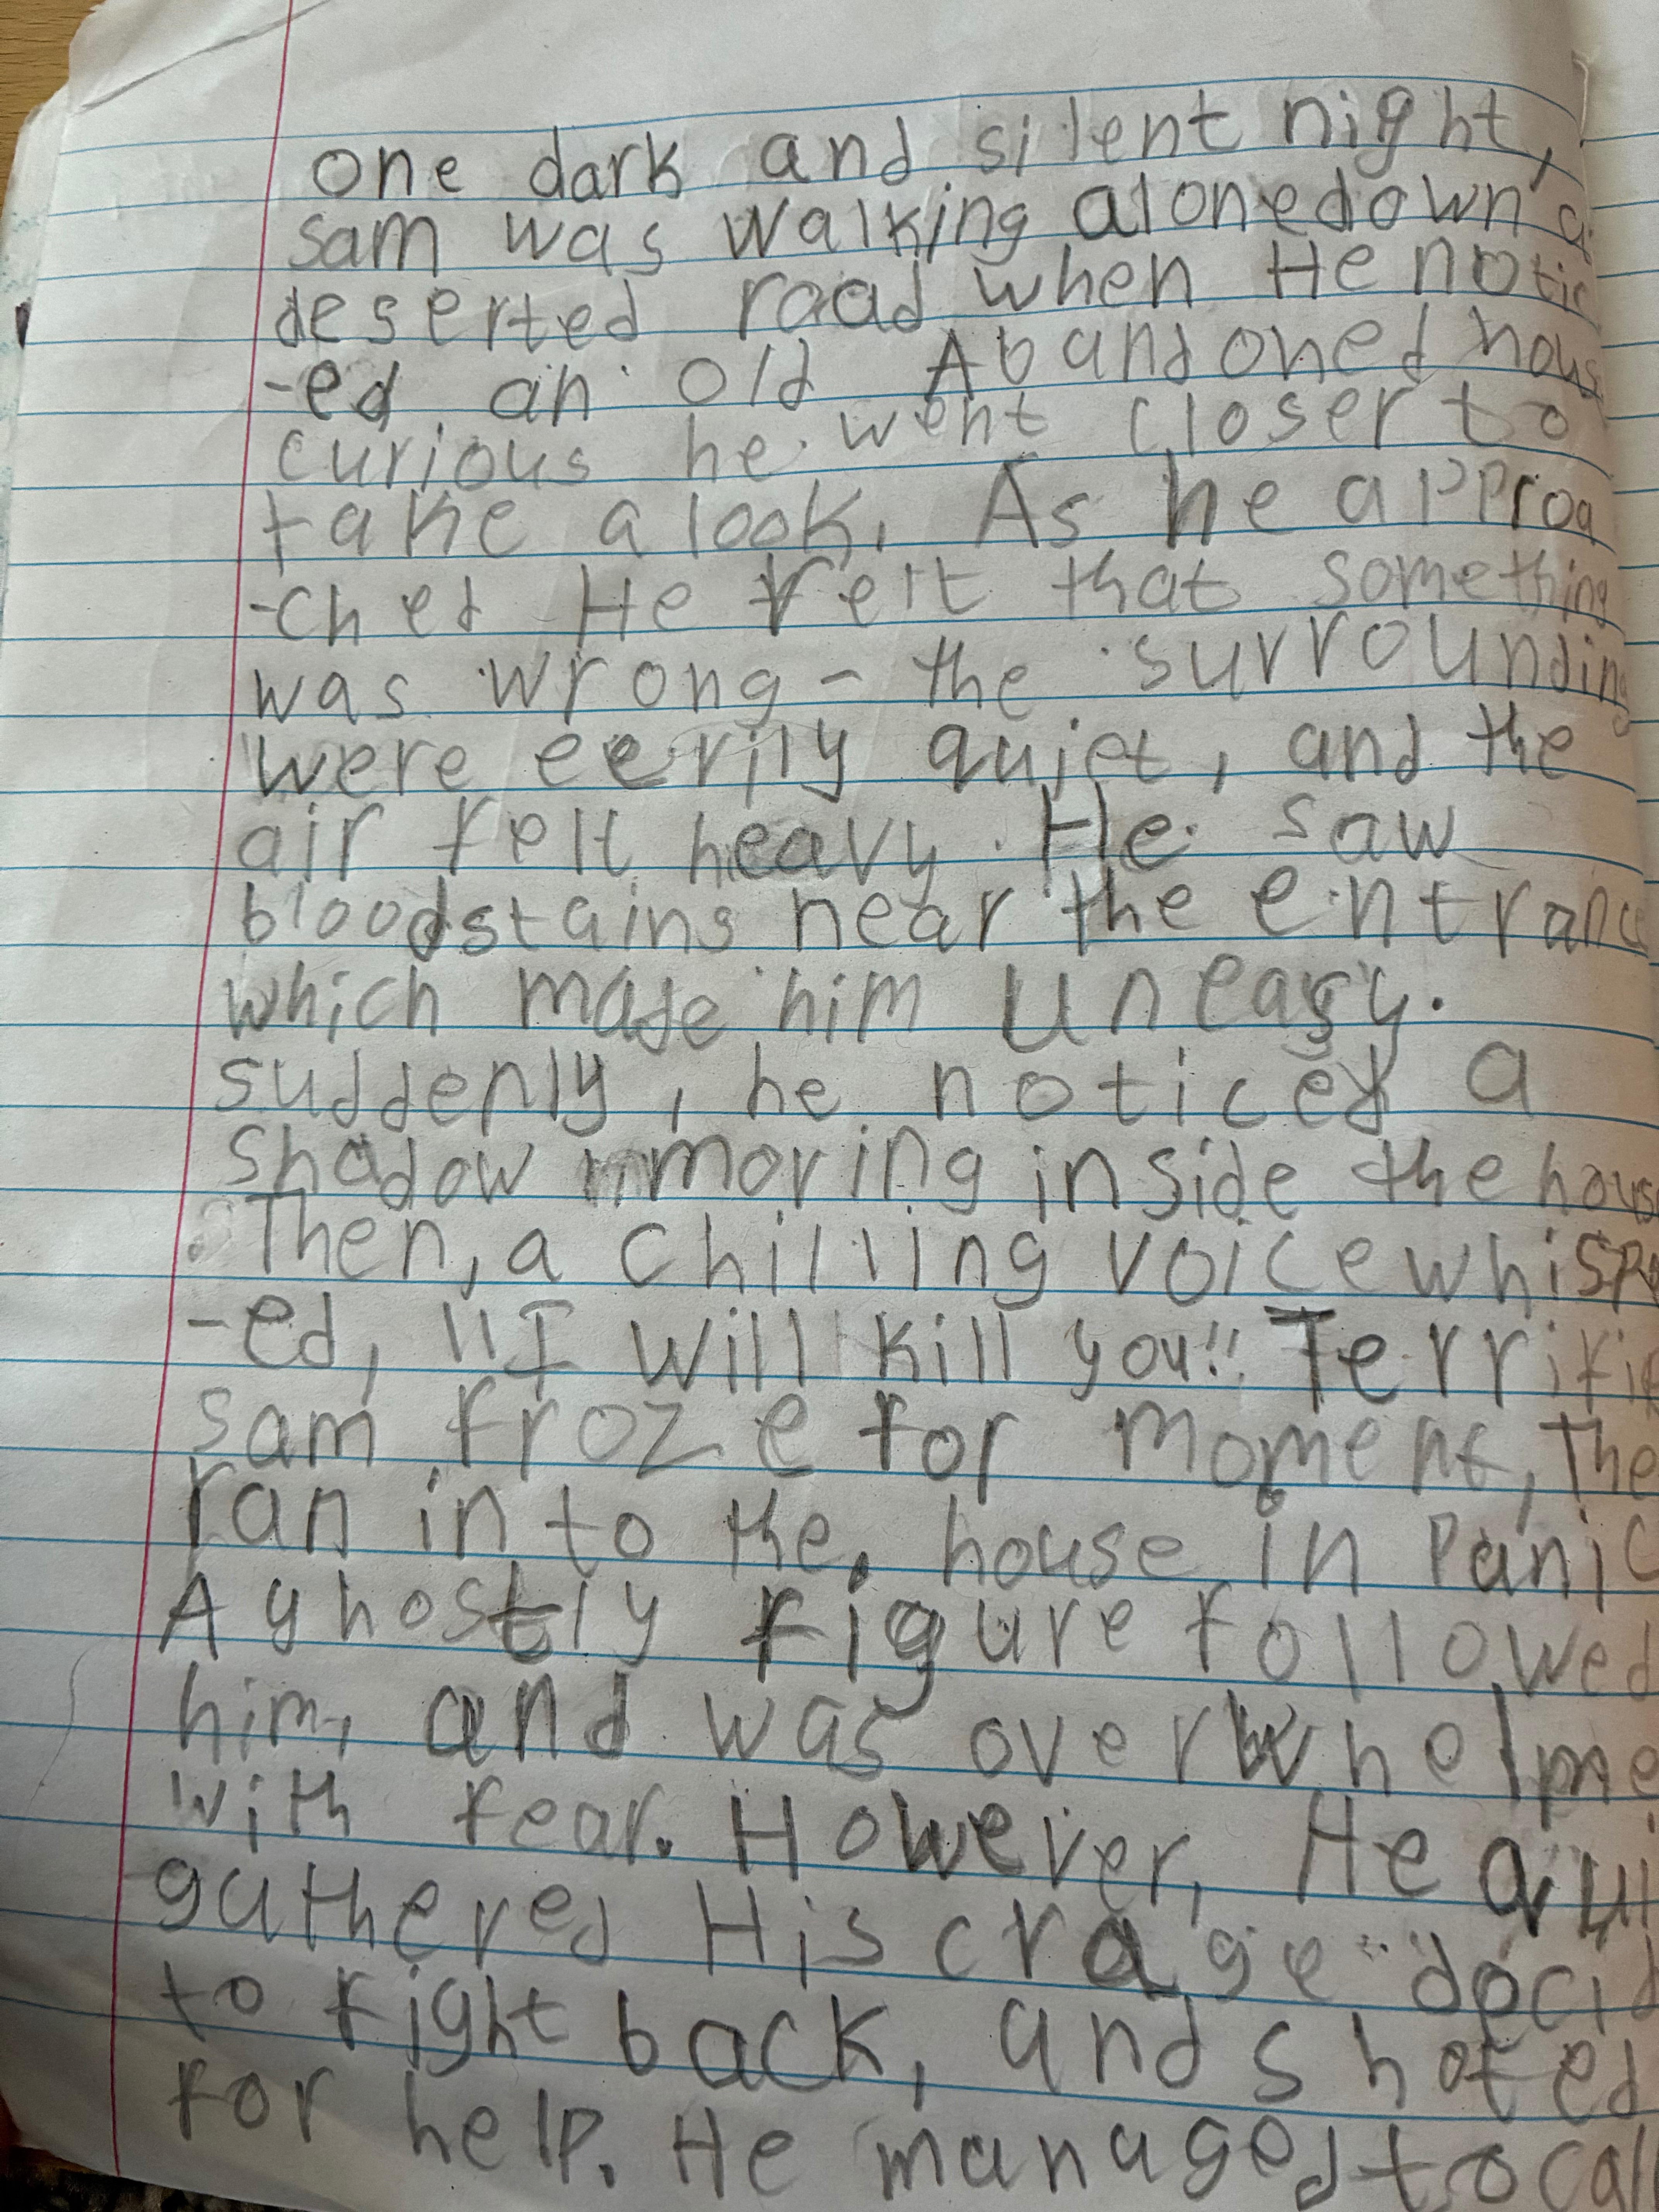 one dark and silent night,
sam was walking alone down a
deserted road when He notic
-ed an old Abandoned hous
curious he went closer to
take a look. As he approa
-ched He felt that something
was wrong - the surrounding
were eerily quiet, and the
air felt heavy. He saw
bloodstains near the entranc
which made him uneasy.
suddenly, he noticed a
shadow moving inside the hous
Then, a chilling voice whispe
-ed, "I will kill you!! Terrifi
sam froze for moment, The
ran in to the house in panic
A ghostly figure followed
him, and was overwhelme
with fear. However, He
gathered His crage decid
to fight back, and shoted
for help. He managed to call